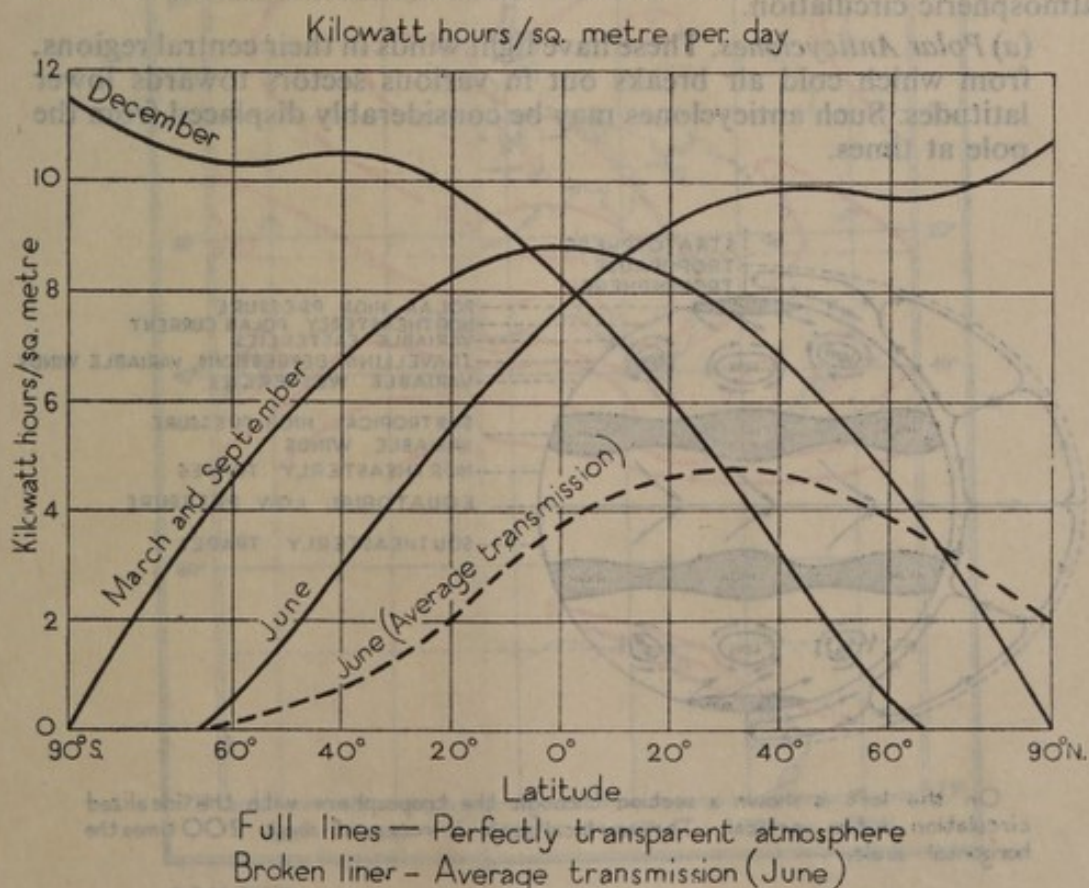 Kilowatt hours/sq. metre per. day
12
10
8
6
4
2
0
Kilkwatt hours/sq. metre
December
March and September
June
June (Average transmission)
90°S. 60° 40° 20° 0° 20° 40° 60° 90°N.
Latitude
Full lines — Perfectly transparent atmosphere
Broken liner – Average transmission (June)